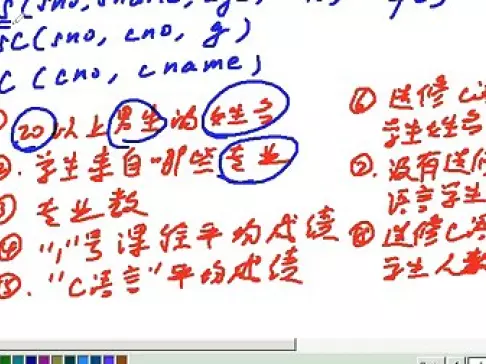 S(sno, sname, age,
SC(sno, cno, g)
C(cno, cname)
① 20以上男生的姓名
②. 学生来自哪些专业
③ 专业数
④ "1"号课程平均成绩
⑤. "C语言"平均成绩
⑥ 选修C语
学生姓名
⑦. 没有选修
语言学生
⑧ 选修C语
学生人数